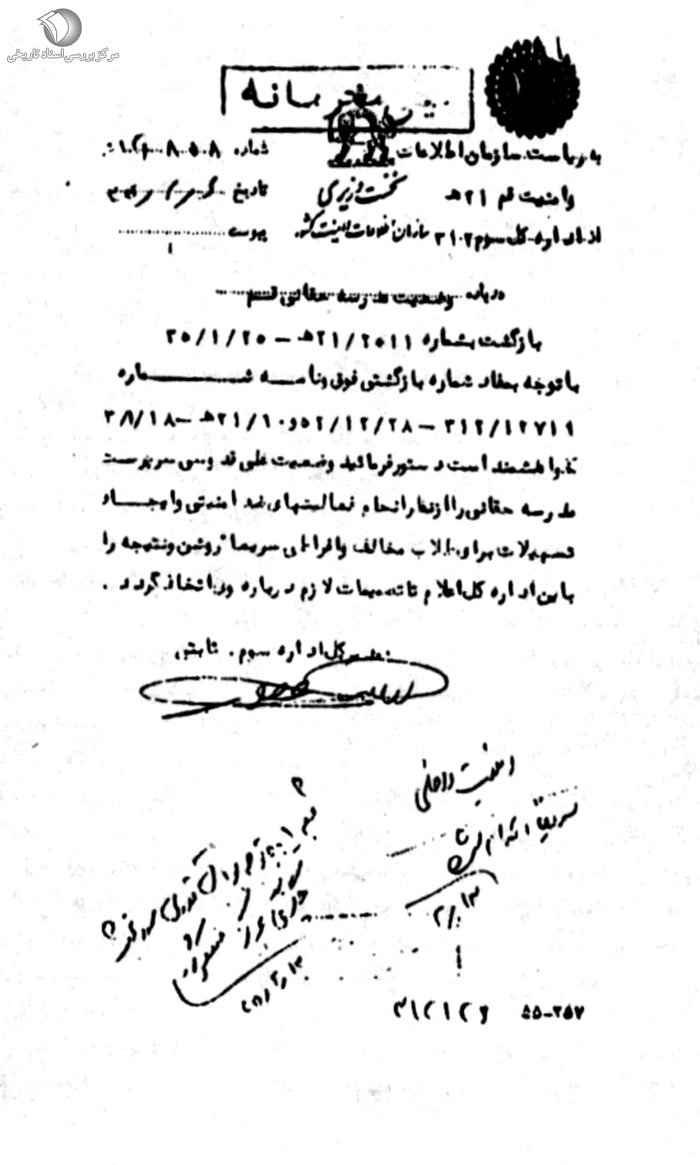 مرکز بررسی اسناد تاریخی
خیلی محرمانه
به ریاست سازمان اطلاعات
وامنیت قم ۲۱هـ
از اداره کل سوم ۳۱۰۲
نخست وزیری
سازمان اطلاعات و امنیت کشور
شماره
تاریخ
پیوست
درباره وضعیت مدرسه حقانی قم
بازگشت بشماره ۲۱/۲۰۱۱هـ – ۳۵/۱/۲۰
با توجه بمفاد شماره بازگشتی فوق ونامه شماره
۳۱۲/۱۲۷۱۹ – ۵۲/۱۲/۲۸ و ۲۱/۱۰هـ – ۳۸/۱۸
خواهشمند است دستور فرمائید وضعیت علی قدوسی سرپرست
مدرسه حقانی را از نظر انجام فعالیتهای ضد امنیتی وایجاد
تسهیلات برای طلاب مخالف وافراطی سریعا روشن ونتیجه را
باین اداره کل اعلام تا تصمیمات لازم درباره وی اتخاذ گردد .
مدیر کل اداره سوم . ثابتی
امنیت داخلی
سریعاً اقدام
۳۱۲۱۲۶
۵۵-۲۵۷